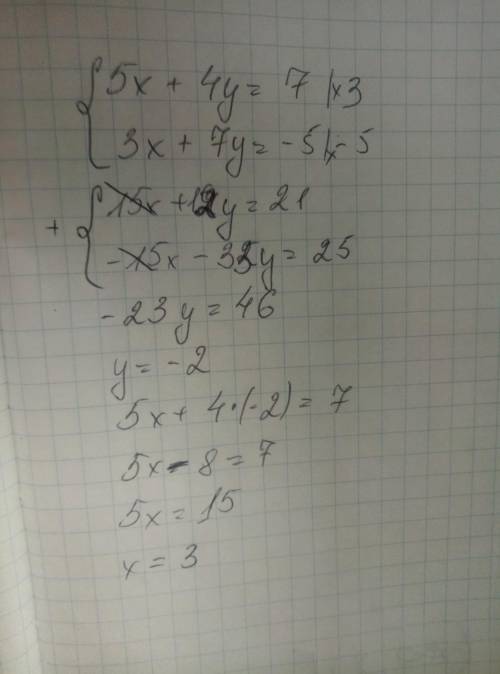 5x + 4y = 7 |×3
3x + 7y = -5 |×-5
+ 15x + 12y = 21
-15x - 35y = 25
-23y = 46
y = -2
5x + 4·(-2) = 7
5x - 8 = 7
5x = 15
x = 3